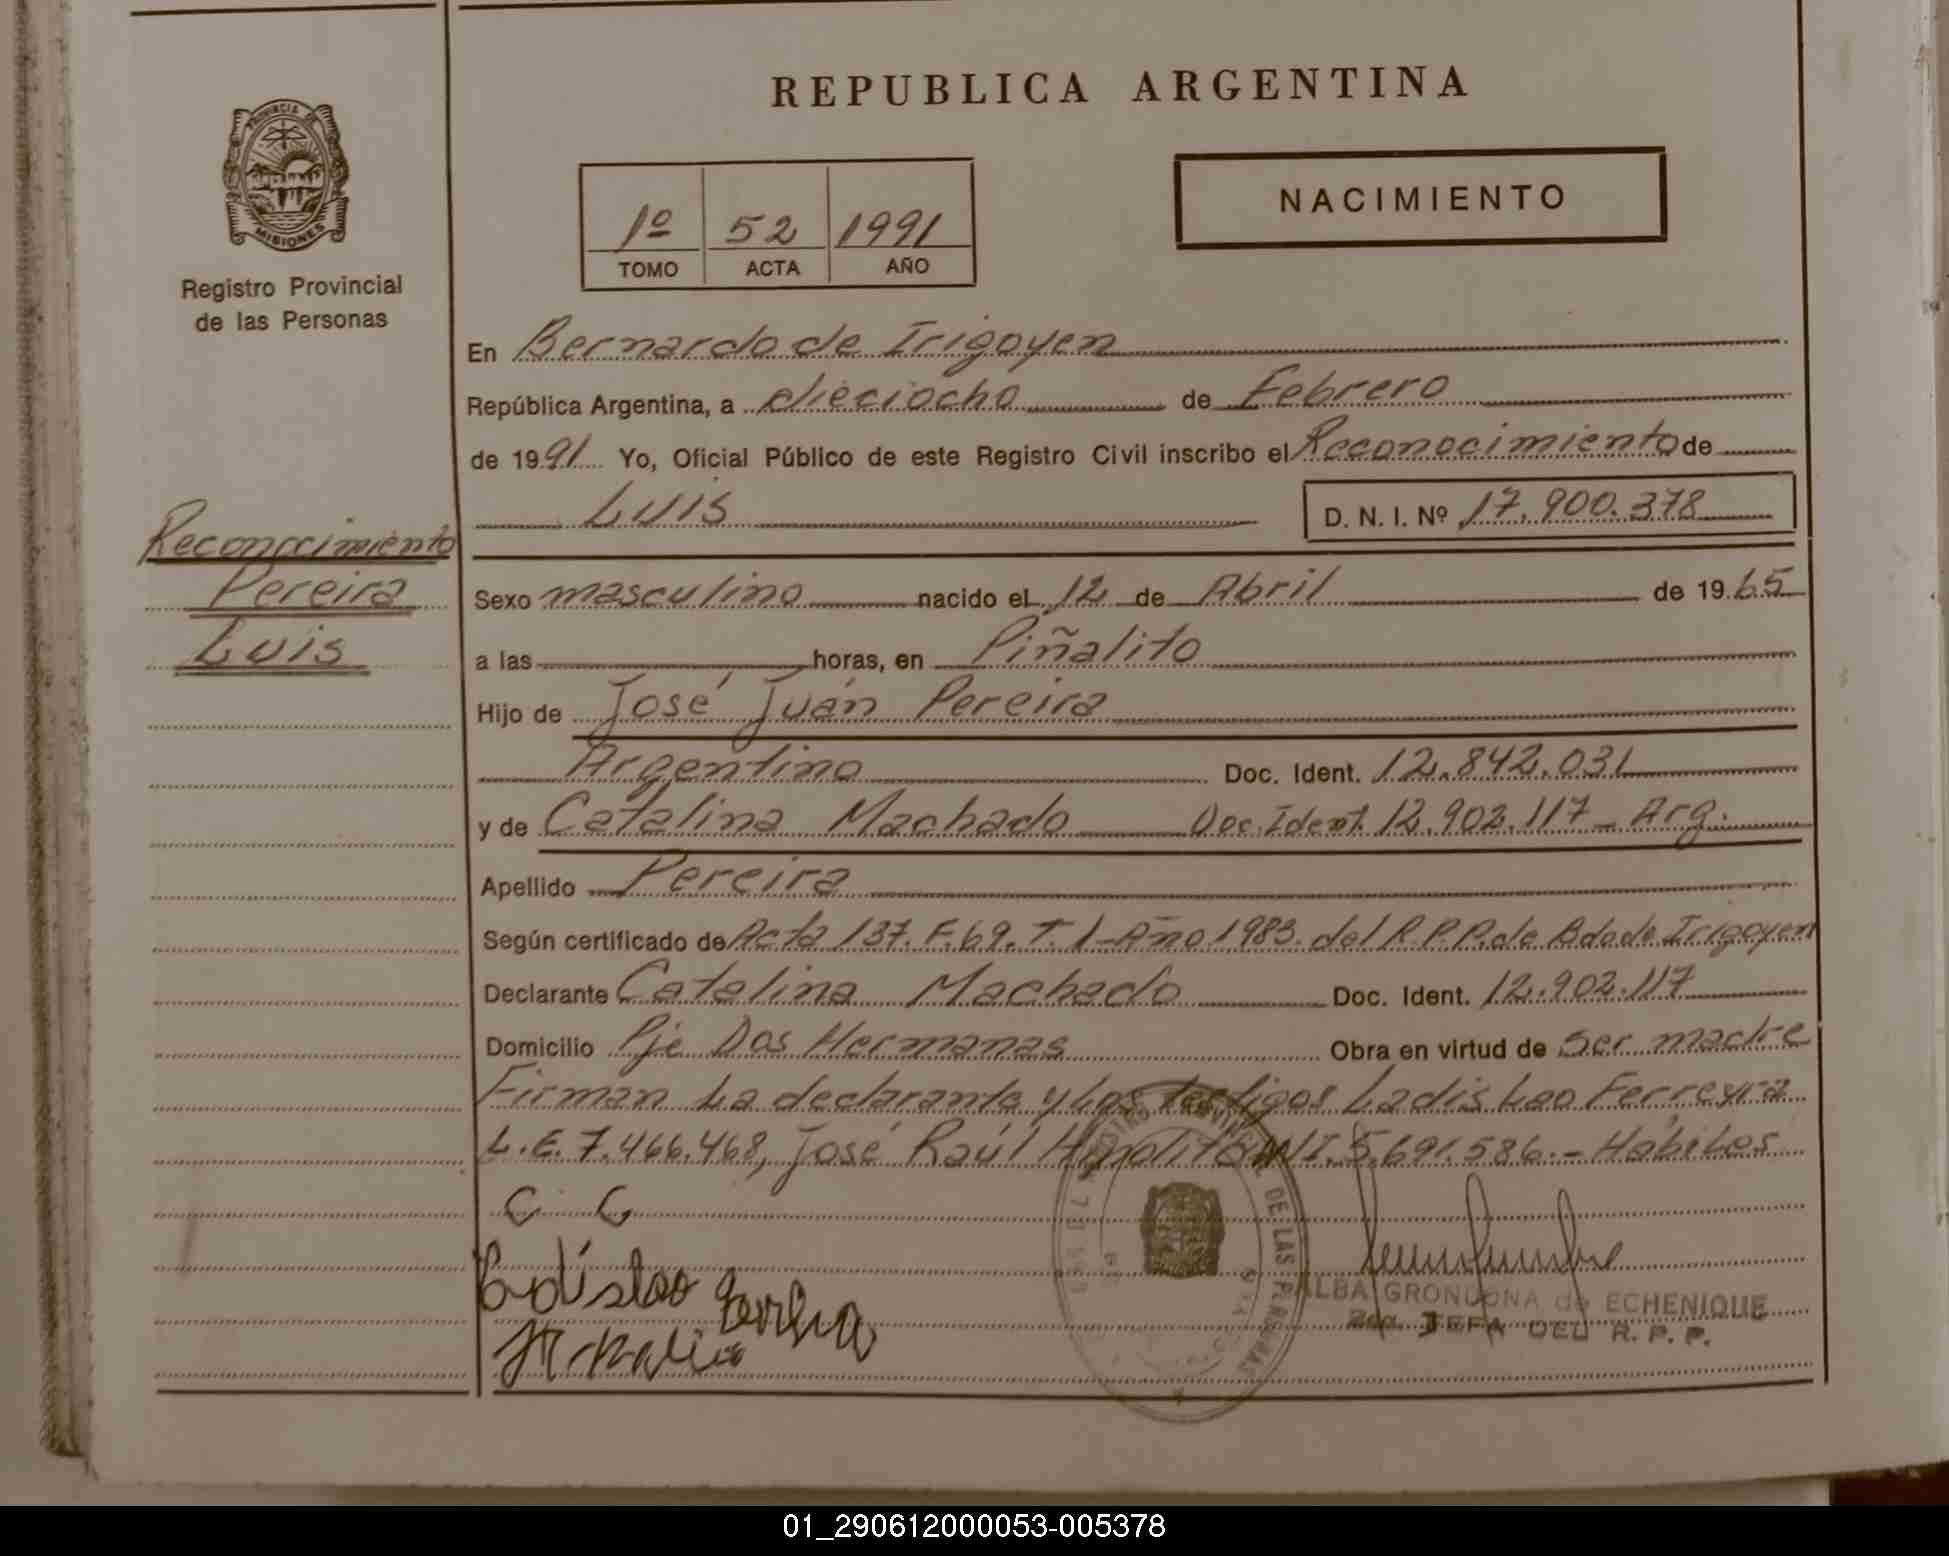 REPUBLICA ARGENTINA
PROVINCIA DE
MISIONES
Registro Provincial
de las Personas
NACIMIENTO
1º 52 1991
TOMO ACTA AÑO
En Bernardo de Irigoyen
República Argentina, a dieciocho de Febrero
de 1991 Yo, Oficial Público de este Registro Civil inscribo el Reconocimiento de
Luis D. N. I. Nº 17.900.378
Reconocimiento
Pereira
Luis
Sexo masculino nacido el 12 de Abril de 1965
a las horas, en Piñalito
Hijo de José Juán Pereira
Argentino Doc. Ident. 12.842.031
y de Catalina Machado Doc. Ident. 12.902.117 - Arg.
Apellido Pereira
Según certificado de Acta 137. F. 69. T. 1 - Año 1983. del R.P.P. de Bdo de Irigoyen
Declarante Catalina Machado Doc. Ident. 12.902.117
Domicilio Pje Dos Hermanas Obra en virtud de ser madre
Firman La declarante y Los testigos Ladis Lao Ferreyra
L.E. 7.466.468, José Raúl Hipolito DNI. 5.691.586.- Hábiles
C. C
Ladislao
ALBA GRONDONA de ECHENIQUE
2da. JEFA DEL R. P. P.
DE LAS PERSONAS
01_290612000053-005378